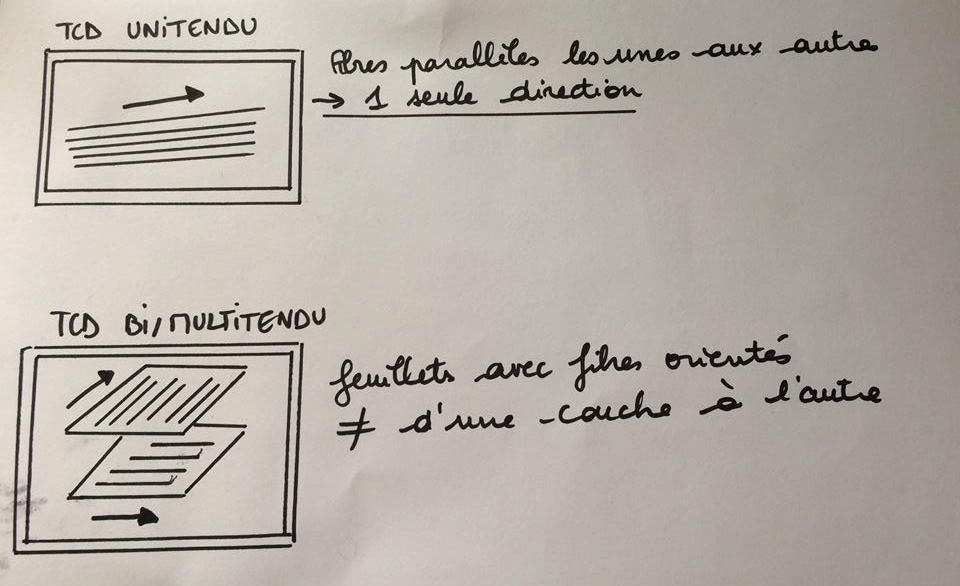 TCD UNITENDU
fibres parallèles les unes aux autre
→ 1 seule direction
TCD Bi/MULTITENDU
feuillets avec fibres orientés
≠ d'une couche à l'autre